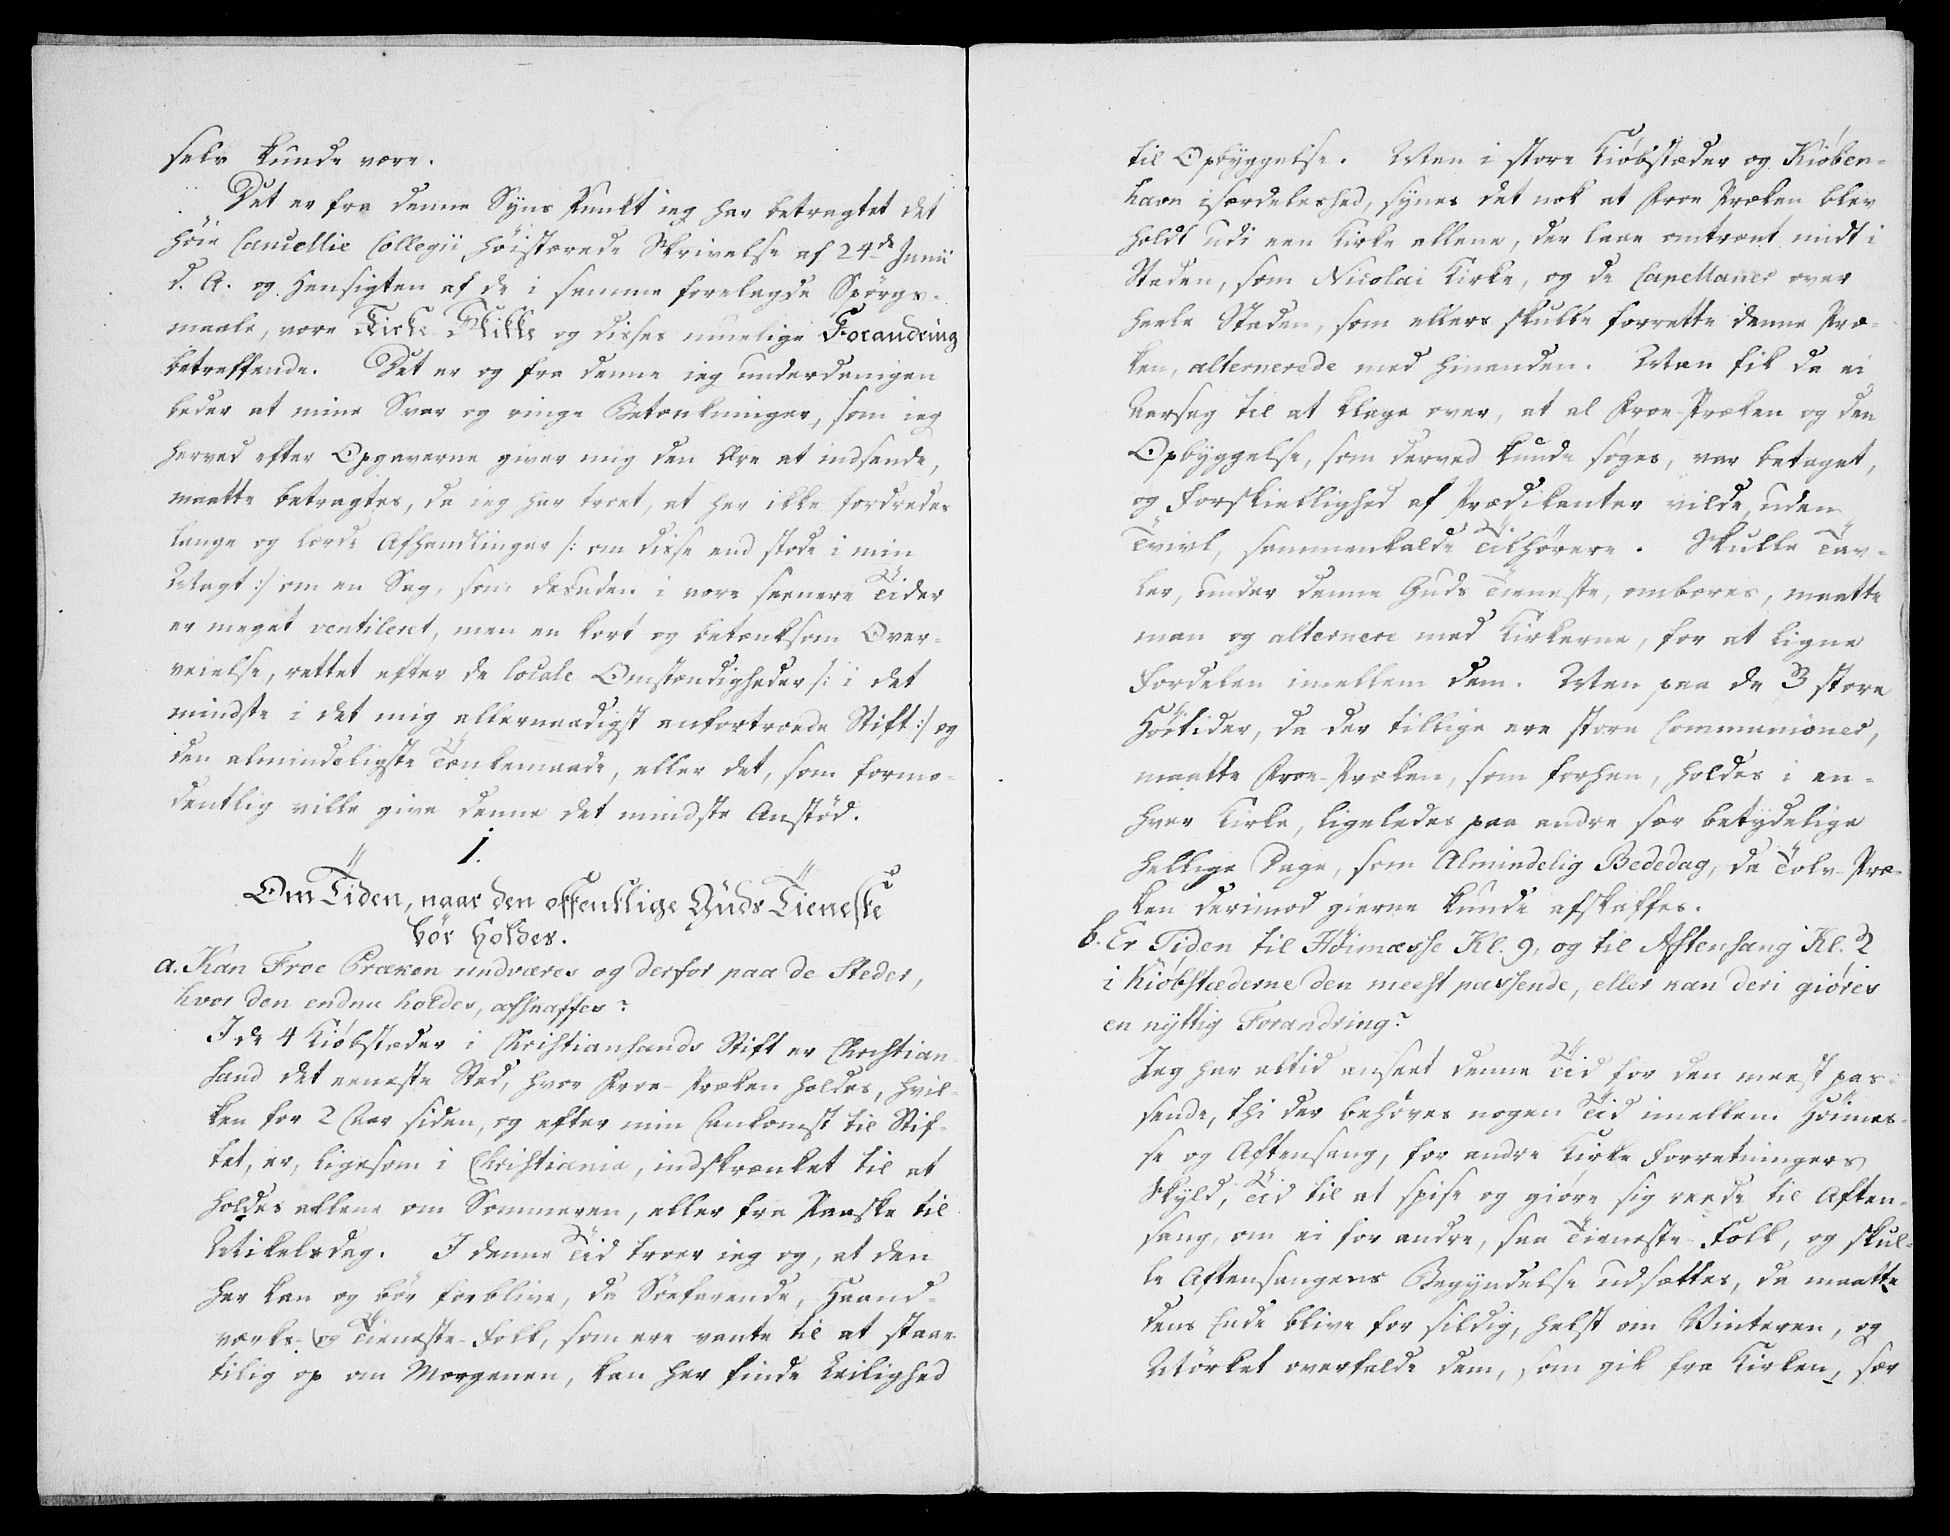 selv kunde være.
Det er fra denne Syns Punkt ieg har betragtet det
höie Cancellie Collegii höistærede Skrivelse af 24de Junii
d. A. og Hensigten af de i samme forelagde Spörgs-
maale, vore Kirke Skikke og disses muelige Forandring
betreffende. Det er og fra denne ieg underdanigen
beder at mine Svar og ringe Betænkninger, som ieg
herved efter Opgaverne giver mig den Ære at indsende,
maatte betragtes, da ieg har troet, at her ikke fordredes
lange og lærde Afhandlinger /: om disse end stode i min
Magt :/ om en Sag, som desuden i vore seenere Tider
er meget ventileret, men en kort og betænksom Over-
veielse, rettet efter de locale Omstændigheder /: i det
mindste i det mig allernaadigst anfortroede Stift :/ og
den almindeligste Tænkemaade, eller det, som formo-
dentlig ville give denne det mindste Anstöd.
1.
Om Tiden, naar den offentlige Guds Tieneste
bör holdes.
a. Kan Froe Præken undværes og derfor paa de Steder,
hvor den endnu holdes, afskaffes?
I de 4 Kiöbstæder i Christiansands Stift er Christian-
sand det eeneste Sted, hvor Froe-Præken holdes, hvil-
ken for 2 Aar siden, og efter min Ankomst til Stif-
tet, er, ligesom i Christiania, indskrænket til at
holdes allene om Sommeren, eller fra Paaske til
Mikelsdag. I denne Tid troer ieg og, at den
her kan og bör forblive, da Söefarende, Haand-
værks- og Tieneste-Folk, som ere vante til at staae
tilig op om Morgenen, kan her finde Leilighed
til Opbyggelse. Men i store Kiöbstæder og Kiöben-
havn isærdeleshed, synes det nok at Froe Præken blev
holdt udi een Kirke allene, der laae omtrent midt i
Staden, som Nicolai Kirke, og de Capellaner over
heele Staden, som ellers skulle forrette denne Præ-
ken, alternerede med hinanden. Man fik da ei
Aarsag til at klage over, at al Froe-Præken og den
Opbyggelse, som derved kunde søges, var betaget,
og Forskiellighed af Prædikanter vilde, uden
Tvivl, sammenkalde Tilhörere. Skulle Tav-
ler, under denne Guds Tieneste, ombæres, maatte
man og alternere med Kirkerne, for at ligne
Fordelen imellem dem. Men paa de 3 store
Höitider, da der tillige ere store Communioner,
maatte Froe-Præken, som forhen, holdes i en-
hver Kirke, ligeledes paa andre sær betydelige
hellige Dage, som Almindelig Bededag, da Tolv-Præ-
ken derimod gierne kunde afskaffes.
b. Er Tiden til Höimæsse Kl. 9, og til Aftensang Kl. 2
i Kiöbstæderne den meest passende, eller kan deri giöres
en nyttig Forandring?
Jeg har altid anseet denne Tid for den meest pas-
sende, thi der behöves nogen Tid imellem Höimes-
se og Aftensang, for andre Kirke Forretningers
Skyld, Tid til at spise og giøre sig reede til Aften-
sang, om ei for andre, saa Tieneste-Folk, og skul-
le Aftensangens Begyndelse udsættes, da maatte
dens Ende blive for sildig, helst om Vinteren, og
Mörket overfalde dem, som gik fra Kirken, sær